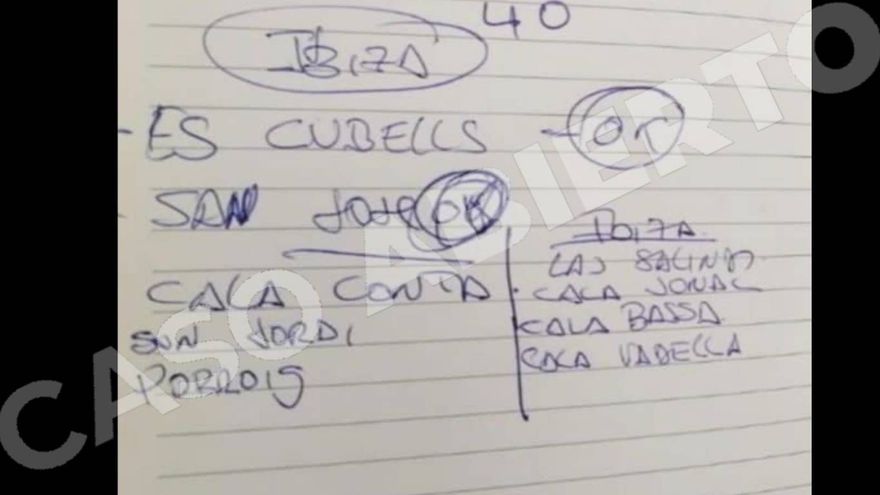 40
IBIZA
- ES CUBELLS - OK
- SAN JOSE OK
CALA CONTA
SON JORDI
PORROIG
IBIZA
LAS SALINAS
. CALA JONAL
CALA BASSA
CALA VADELLA
CASO ABIERTO